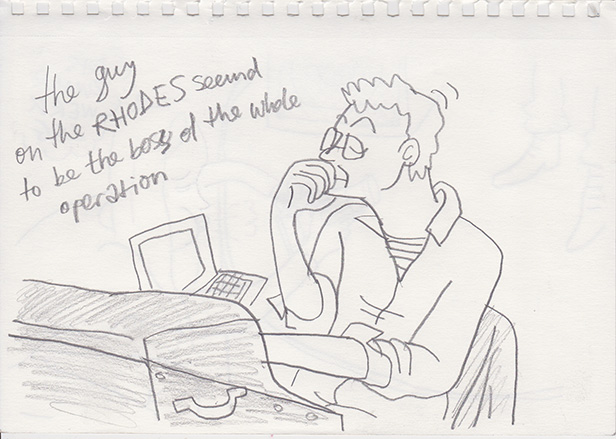 the guy
on the RHODES seemd
to be the boss of the whole
operation